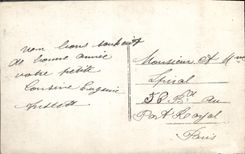 nom bons souhaits
de bonne année
votre petite
Cousine Eugénie
Monsieur et Mme
58 Bd du
Port Royal
Paris